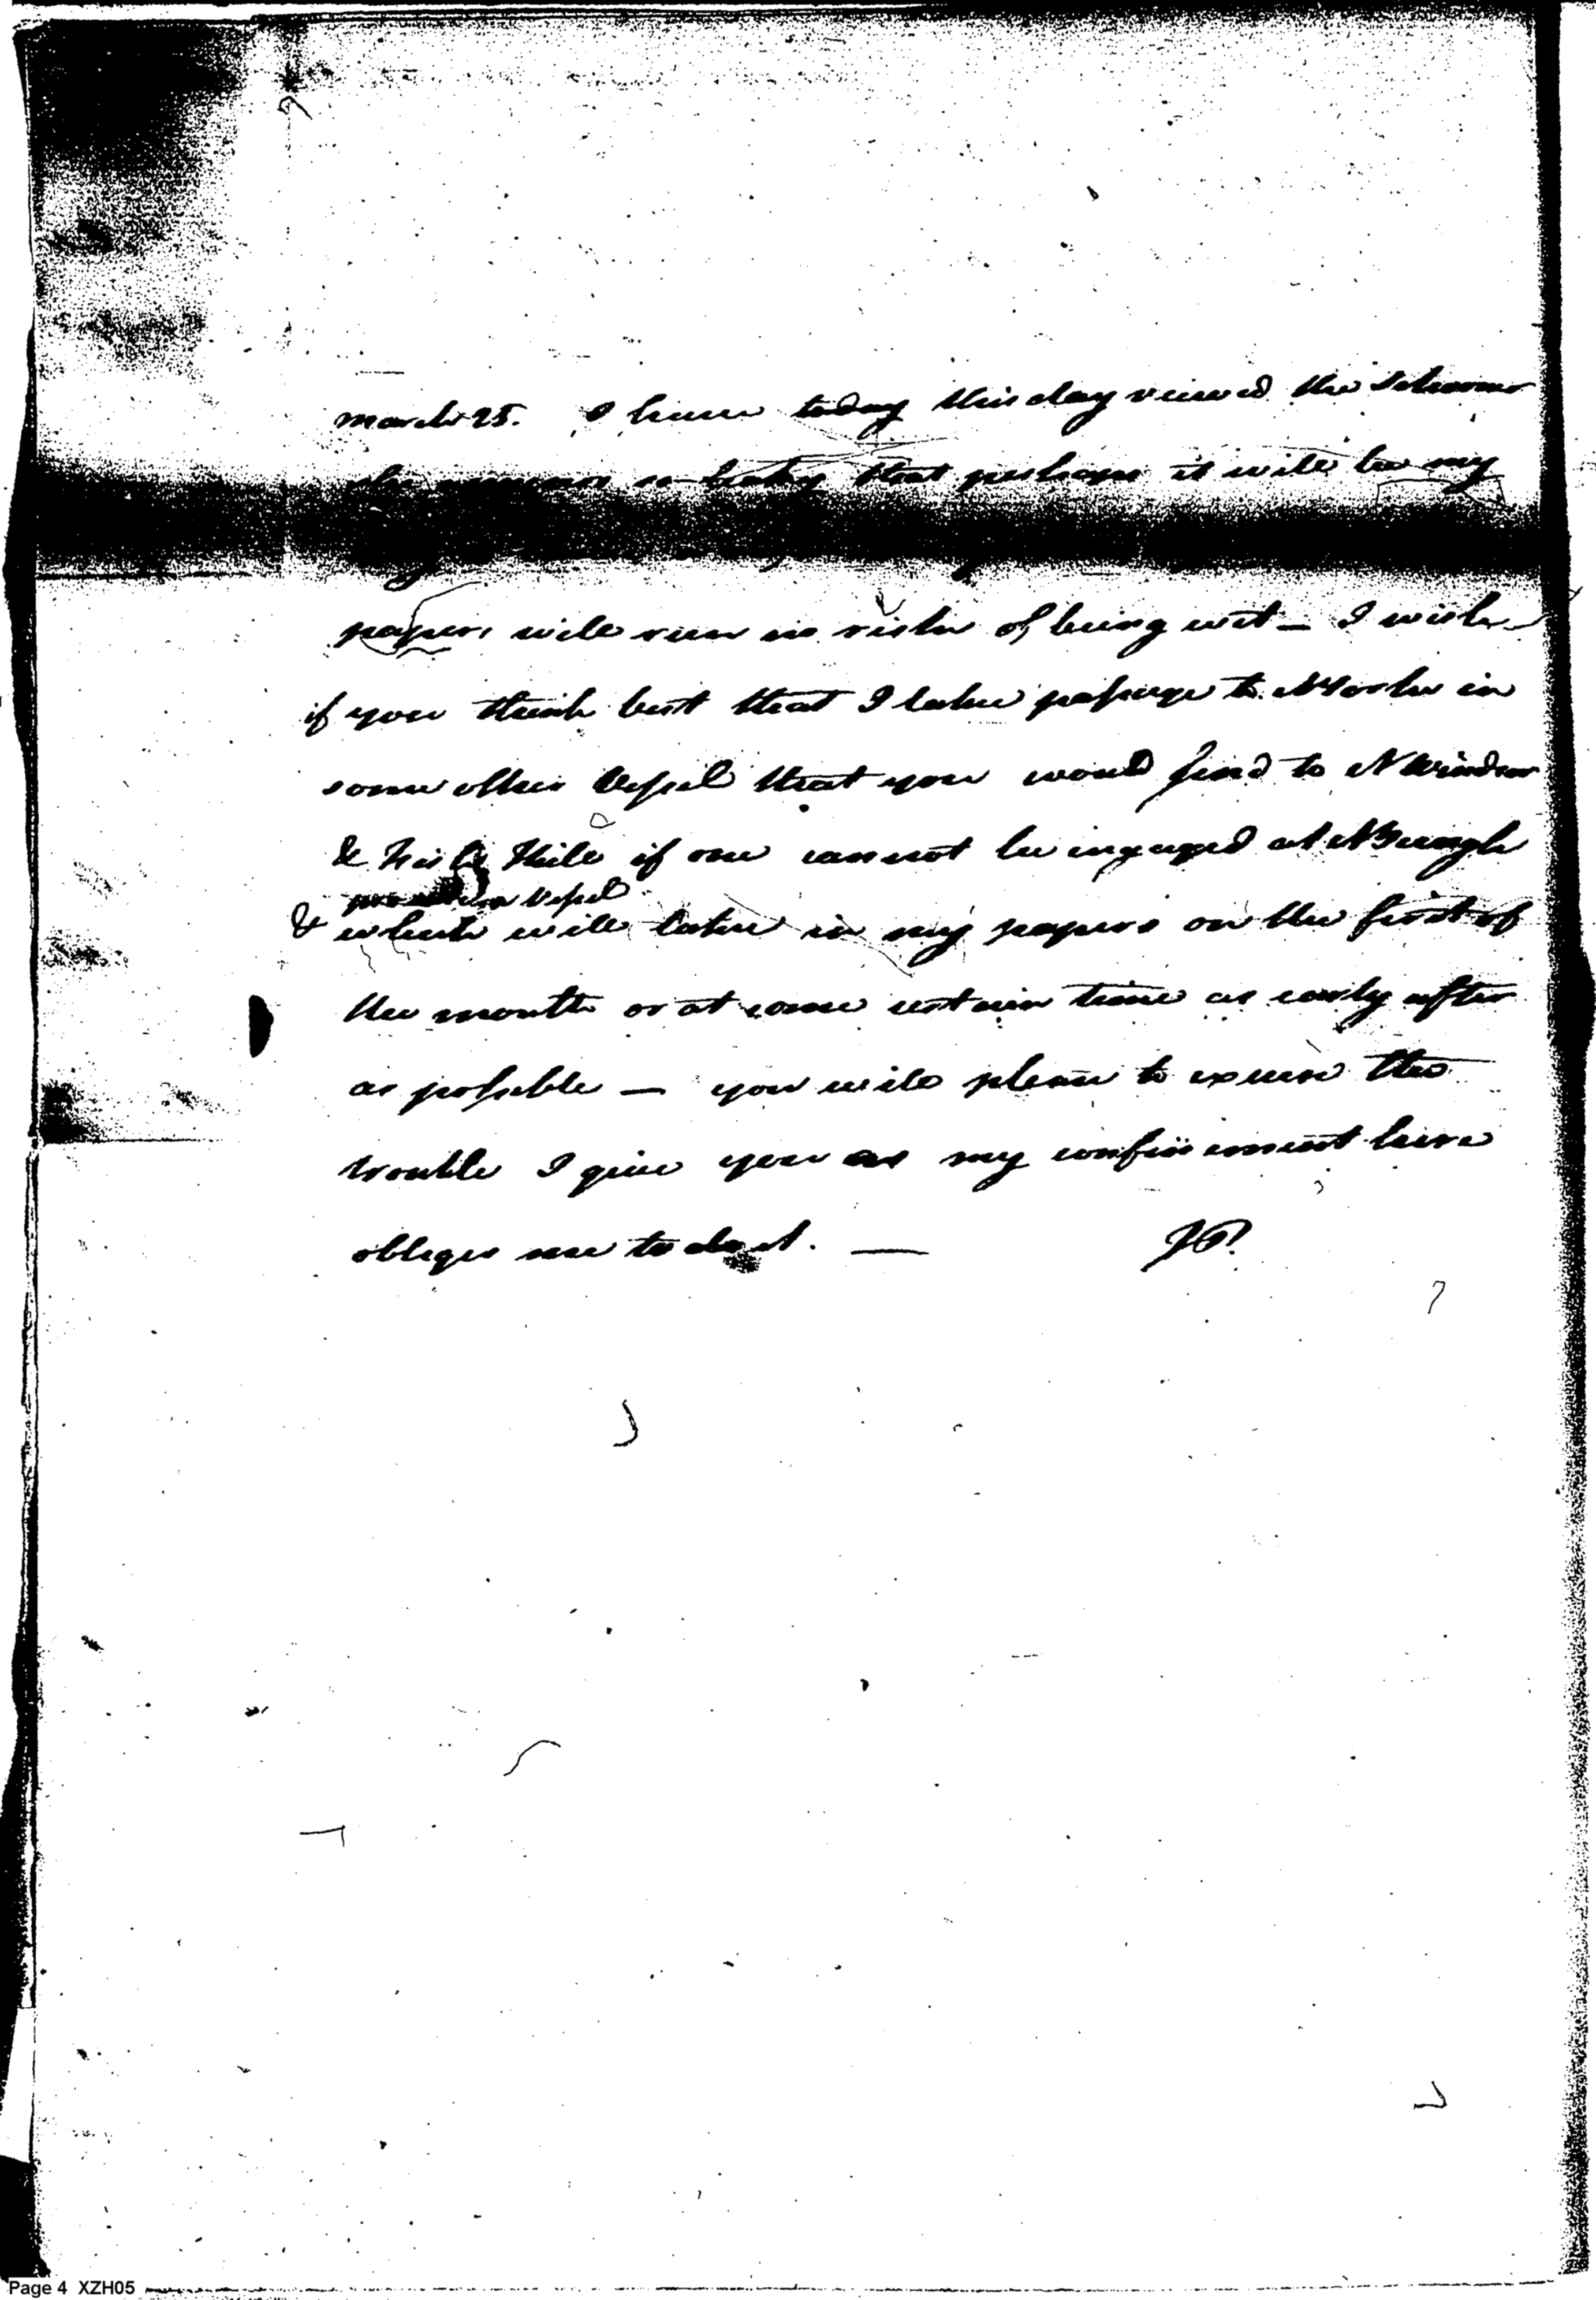 March 25. I have today this day viewed the Schooner
she appears so leaky that perhaps it will be my
papers will run no risk of being wet — I wish
if you think best that I take passage to NYork in
some other Vessel that you would send to N Windsor
& Fish Kill if one cannot be ingaged at NBurgh
Vessel
& which will take in my papers on the first of
the month or at some certain time as early after
as possible — you will please to excuse the
trouble I give you as my confinement here
obliges me to do it. —
Page 4 XZH05